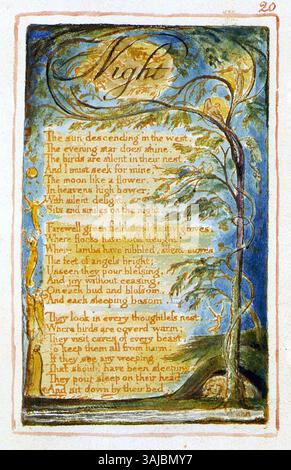 20
Night
The sun descending in the west,
The evening star does shine.
The birds are silent in their nest,
And I must seek for mine,
The moon like a flower,
In heavens high bower;
With silent delight,
Sits and smiles on the night.
Farewell green groves,
Where flocks have took delight;
Where lambs have nibbled, silent moves
The feet of angels bright;
Unseen they pour blessing,
And joy without ceasing,
On each bud and blossom,
And each sleeping bosom.
They look in every thoughtless nest,
Where birds are coverd warm;
They visit caves of every beast,
To keep them all from harm;
If they see any weeping,
That should have been sleeping
They pour sleep on their head
And sit down by their bed
alamy
Image ID: 3AJBMY7
www.alamy.com